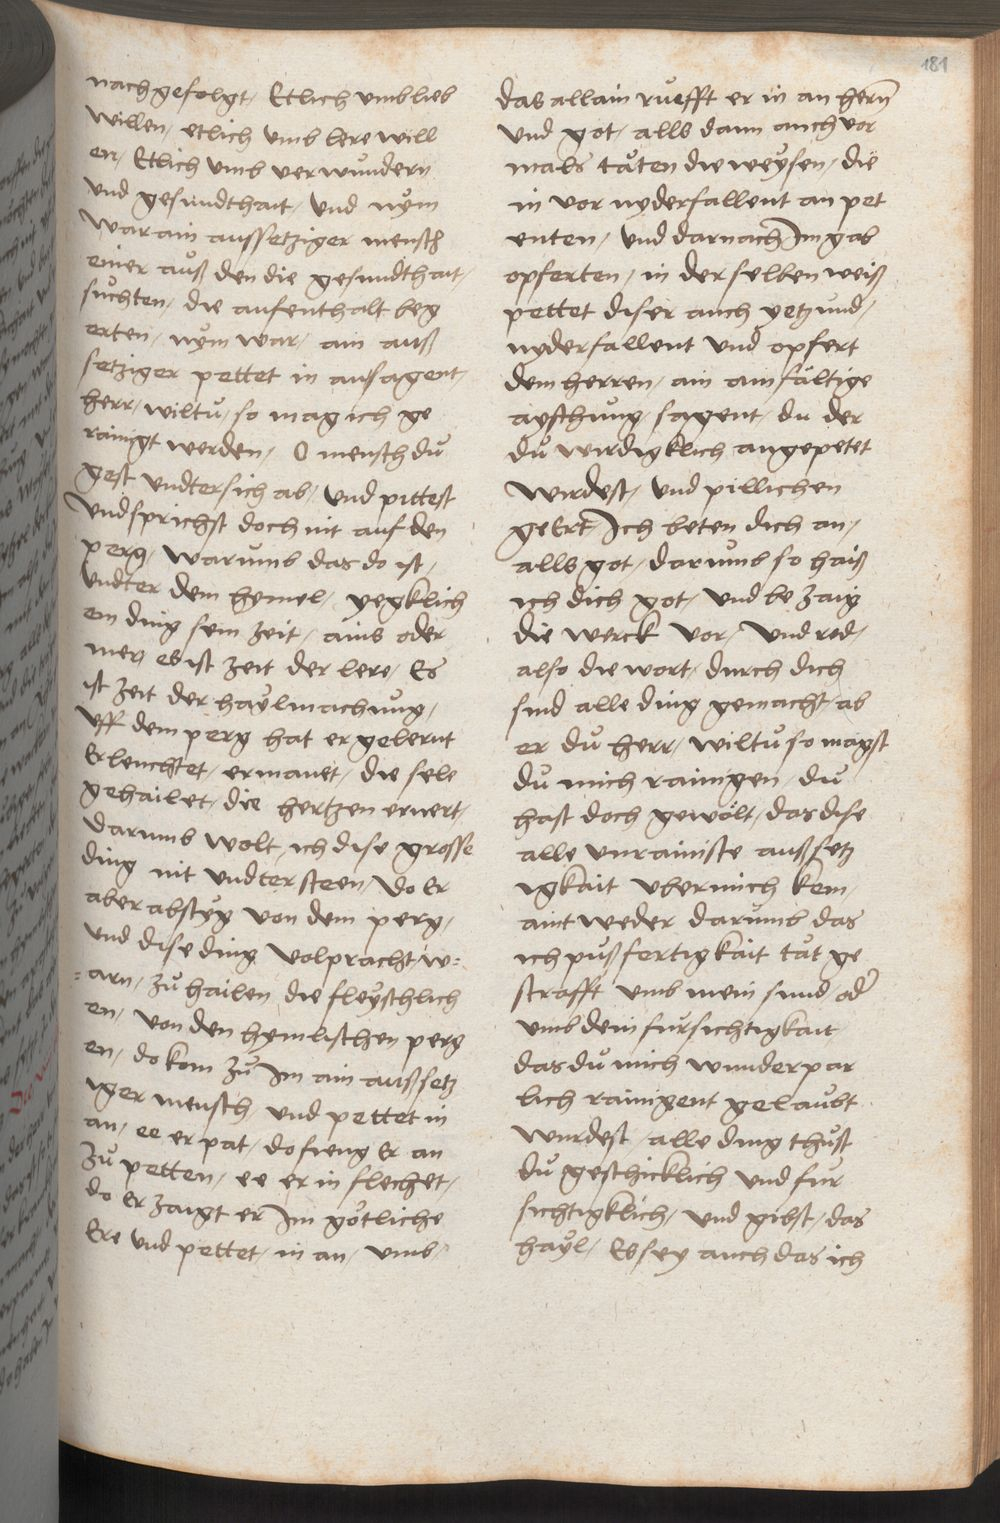 181
nachgefolgt / Etlich umb lieb
willen / etlich umb lere will
en / Etlich umb verwundern
und gesundthait / und nÿm
war ain aussetziger mensch
einer auß den die gesundthait /
suchten / die aufenthalt beg
erten / nÿm war / ain auß
setziger pettet in an sagent /
herr / wiltu / so mag ich ge
rainigt werden / O mensch du
gest undtersich ab / und pittest
und sprichst doch nit auf den
perg / warumb das do ist /
undter dem hemel / yegklich
em ding sein zeit / ains oder
mer / es ist zeit der lere / Es
ist zeit der haylmachung /
uff dem perg hat er gelernt
Erleuchtet / ermanet / die sele
gehailet / die hertzen ernert /
darumb wolt / ich dise grosse
ding nit undtersteen / do Er
aber abstyg von dem perg /
und dise ding volpracht w=
=arn / zu hailen die fleyschlich
en / von den hymlischen perg
en / do kom zu Im ain außsetz
iger mensch / und pettet in
an / ee er pat / do fieng Er an
zu petten / ee er in flechet /
do Er zaigt er Im götliche
Ere und pettet / in an / umb /
das allain ruefft er in an hern
und got / alls dann auch vor
mals taten die weysen / die
in vor nyderfallent an pet
enten / und darnach Im gab
opferten / in der selben weiß
pettet diser auch yetzund /
nyderfallent und opfert
dem herren / ain ainfältige
ayschung / sagent / du der
du wirdigklich angepetet
wirdest / und pillichen
geErt / Ich beten dich an /
alls got / darumb so haiß
ich dich got / und bezaig
die werck vor / und red /
also die wort / durch dich
sind alle ding gemacht / ab
er du herr / wiltu so magst
du mich rainigen / du
hast doch gewolt / das dise
alle unrainiste außsetz
igkait uber mich kem /
aintweder darumb das
ich pußfertigkait tät ge
strafft umb mein sund oder
umb dein fursichtigkait
das du mich wunderpar
lich rainigent gelaubt
wurdest / alle ding thust
du geschicklich und fur
sichtigklich / und gibst / das
hayl / Es sey auch das ich